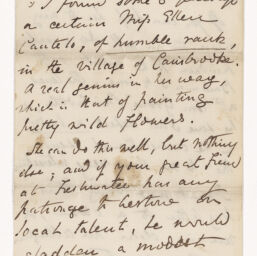 I found some
a certain Miss Ellen
Cantelo, of humble rank,
in the village of Carisbrooke
A real genius in her way,
which is that of painting
pretty wild flowers.
She can do this well, but nothing
else; and if your great friend
at Freshwater has any
patronage to bestow on
local talent, he would
gladden a modest